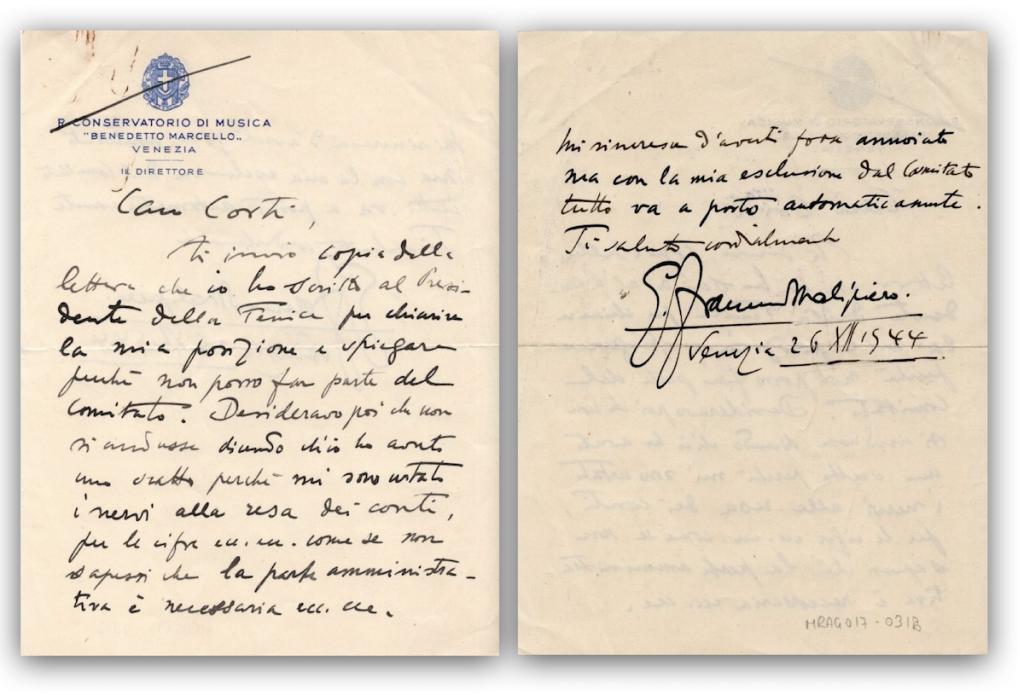 R. CONSERVATORIO DI MUSICA
"BENEDETTO MARCELLO"
VENEZIA
IL DIRETTORE
Caro Corti,
ti invio copia della
lettera che io ho scritto al Presi-
dente della Fenice per chiarire
la mia posizione e spiegare
perchè non posso far parte del
Comitato. Desideravo poi che non
si andasse dicendo ch'io ho avuto
uno scatto perchè mi sono urtato
i nervi alla resa dei conti,
per le cifre ecc. ecc. come se non
sapessi che la parte amministra-
tiva è necessaria ecc. ecc.
Mi rincresce d'averti fora annoiato
ma con la mia esclusione dal Comitato
tutto va a posto automaticamente.
Ti saluto cordialmente
G. Francesco Malipiero.
Venezia 26 XII 1944
MRAG017-031B